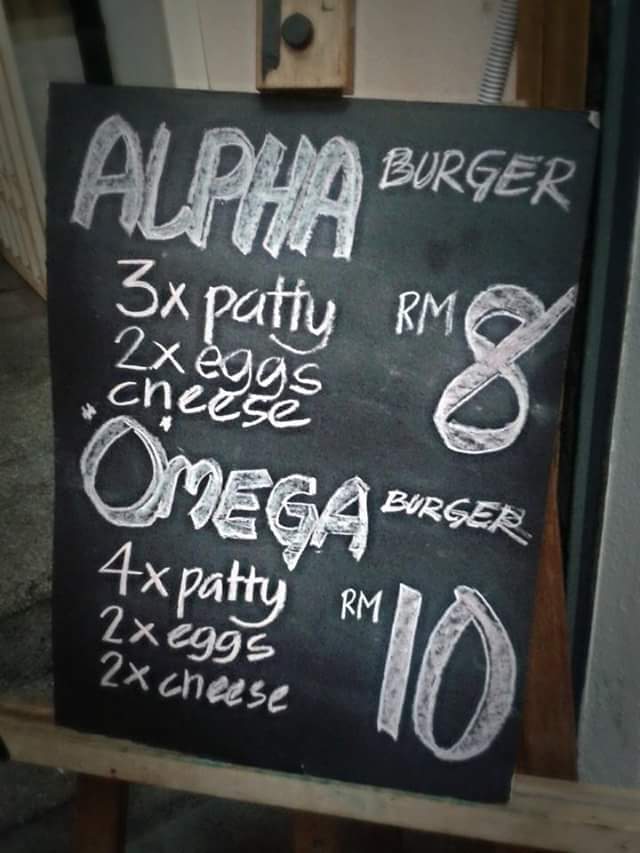 ALPHA BURGER
3x patty RM 8
2x eggs
cheese
OMEGA BURGER
4x patty RM 10
2x eggs
2x cheese